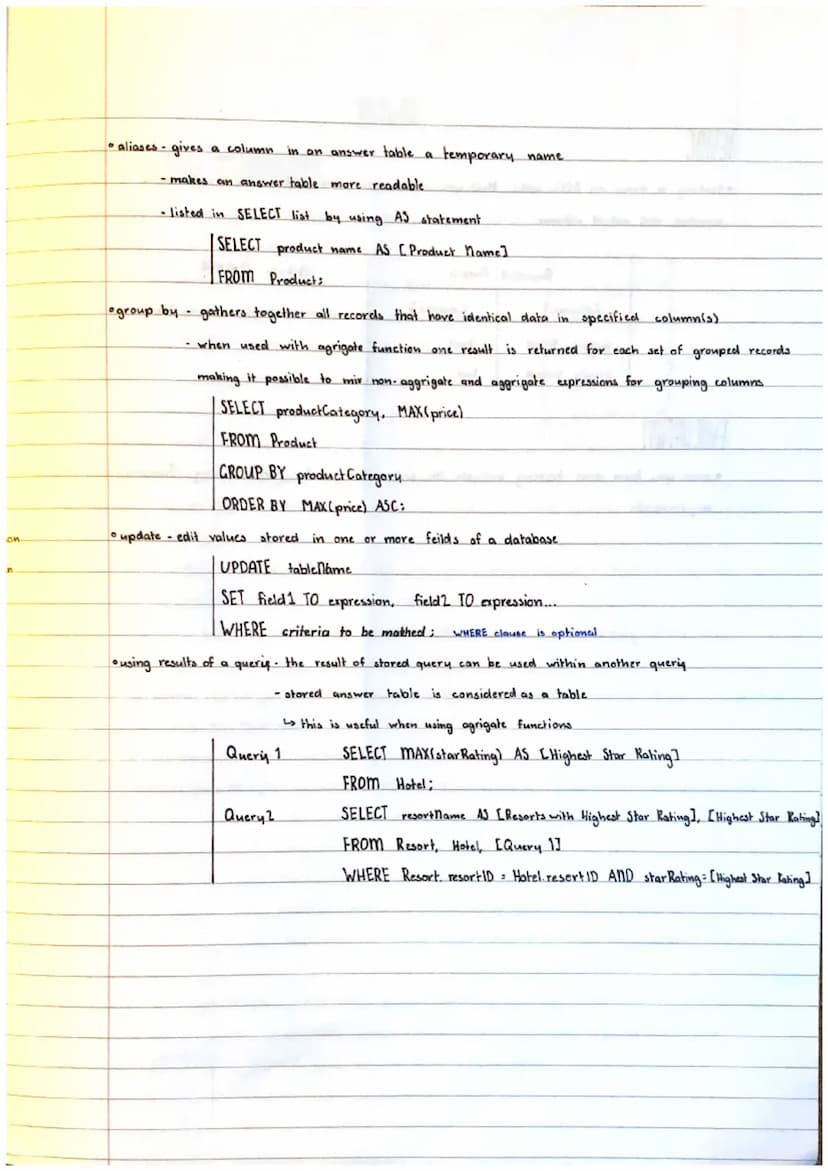 • aliases - gives a column in an answer table a temporary name
- makes an answer table more readable
- listed in SELECT list by using AS statement
SELECT product name AS [Product Name]
FROM Product;
• group by - gathers together all records that have identical data in specified column(s)
- when used with agrigate function one result is returned for each set of grouped records
making it possible to mix non-aggrigate and aggrigate expressions for grouping columns
SELECT productCategory, MAX(price)
FROM Product
GROUP BY productCategory
ORDER BY MAX(price) ASC;
on
• update - edit values stored in one or more feilds of a database
n
UPDATE tableName
SET field1 TO expression, field2 TO expression...
WHERE criteria to be mathed; WHERE clause is optional
• using results of a query - the result of stored query can be used within another query
- stored answer table is considered as a table
↳ this is useful when using agrigate functions
Query 1 SELECT MAX(starRating) AS [Highest Star Rating]
FROM Hotel;
Query2 SELECT resortName AS [Resorts with Highest Star Rating], [Highest Star Rating]
FROM Resort, Hotel, [Query 1]
WHERE Resort. resortID = Hotel.resortID AND starRating = [Highest Star Rating]